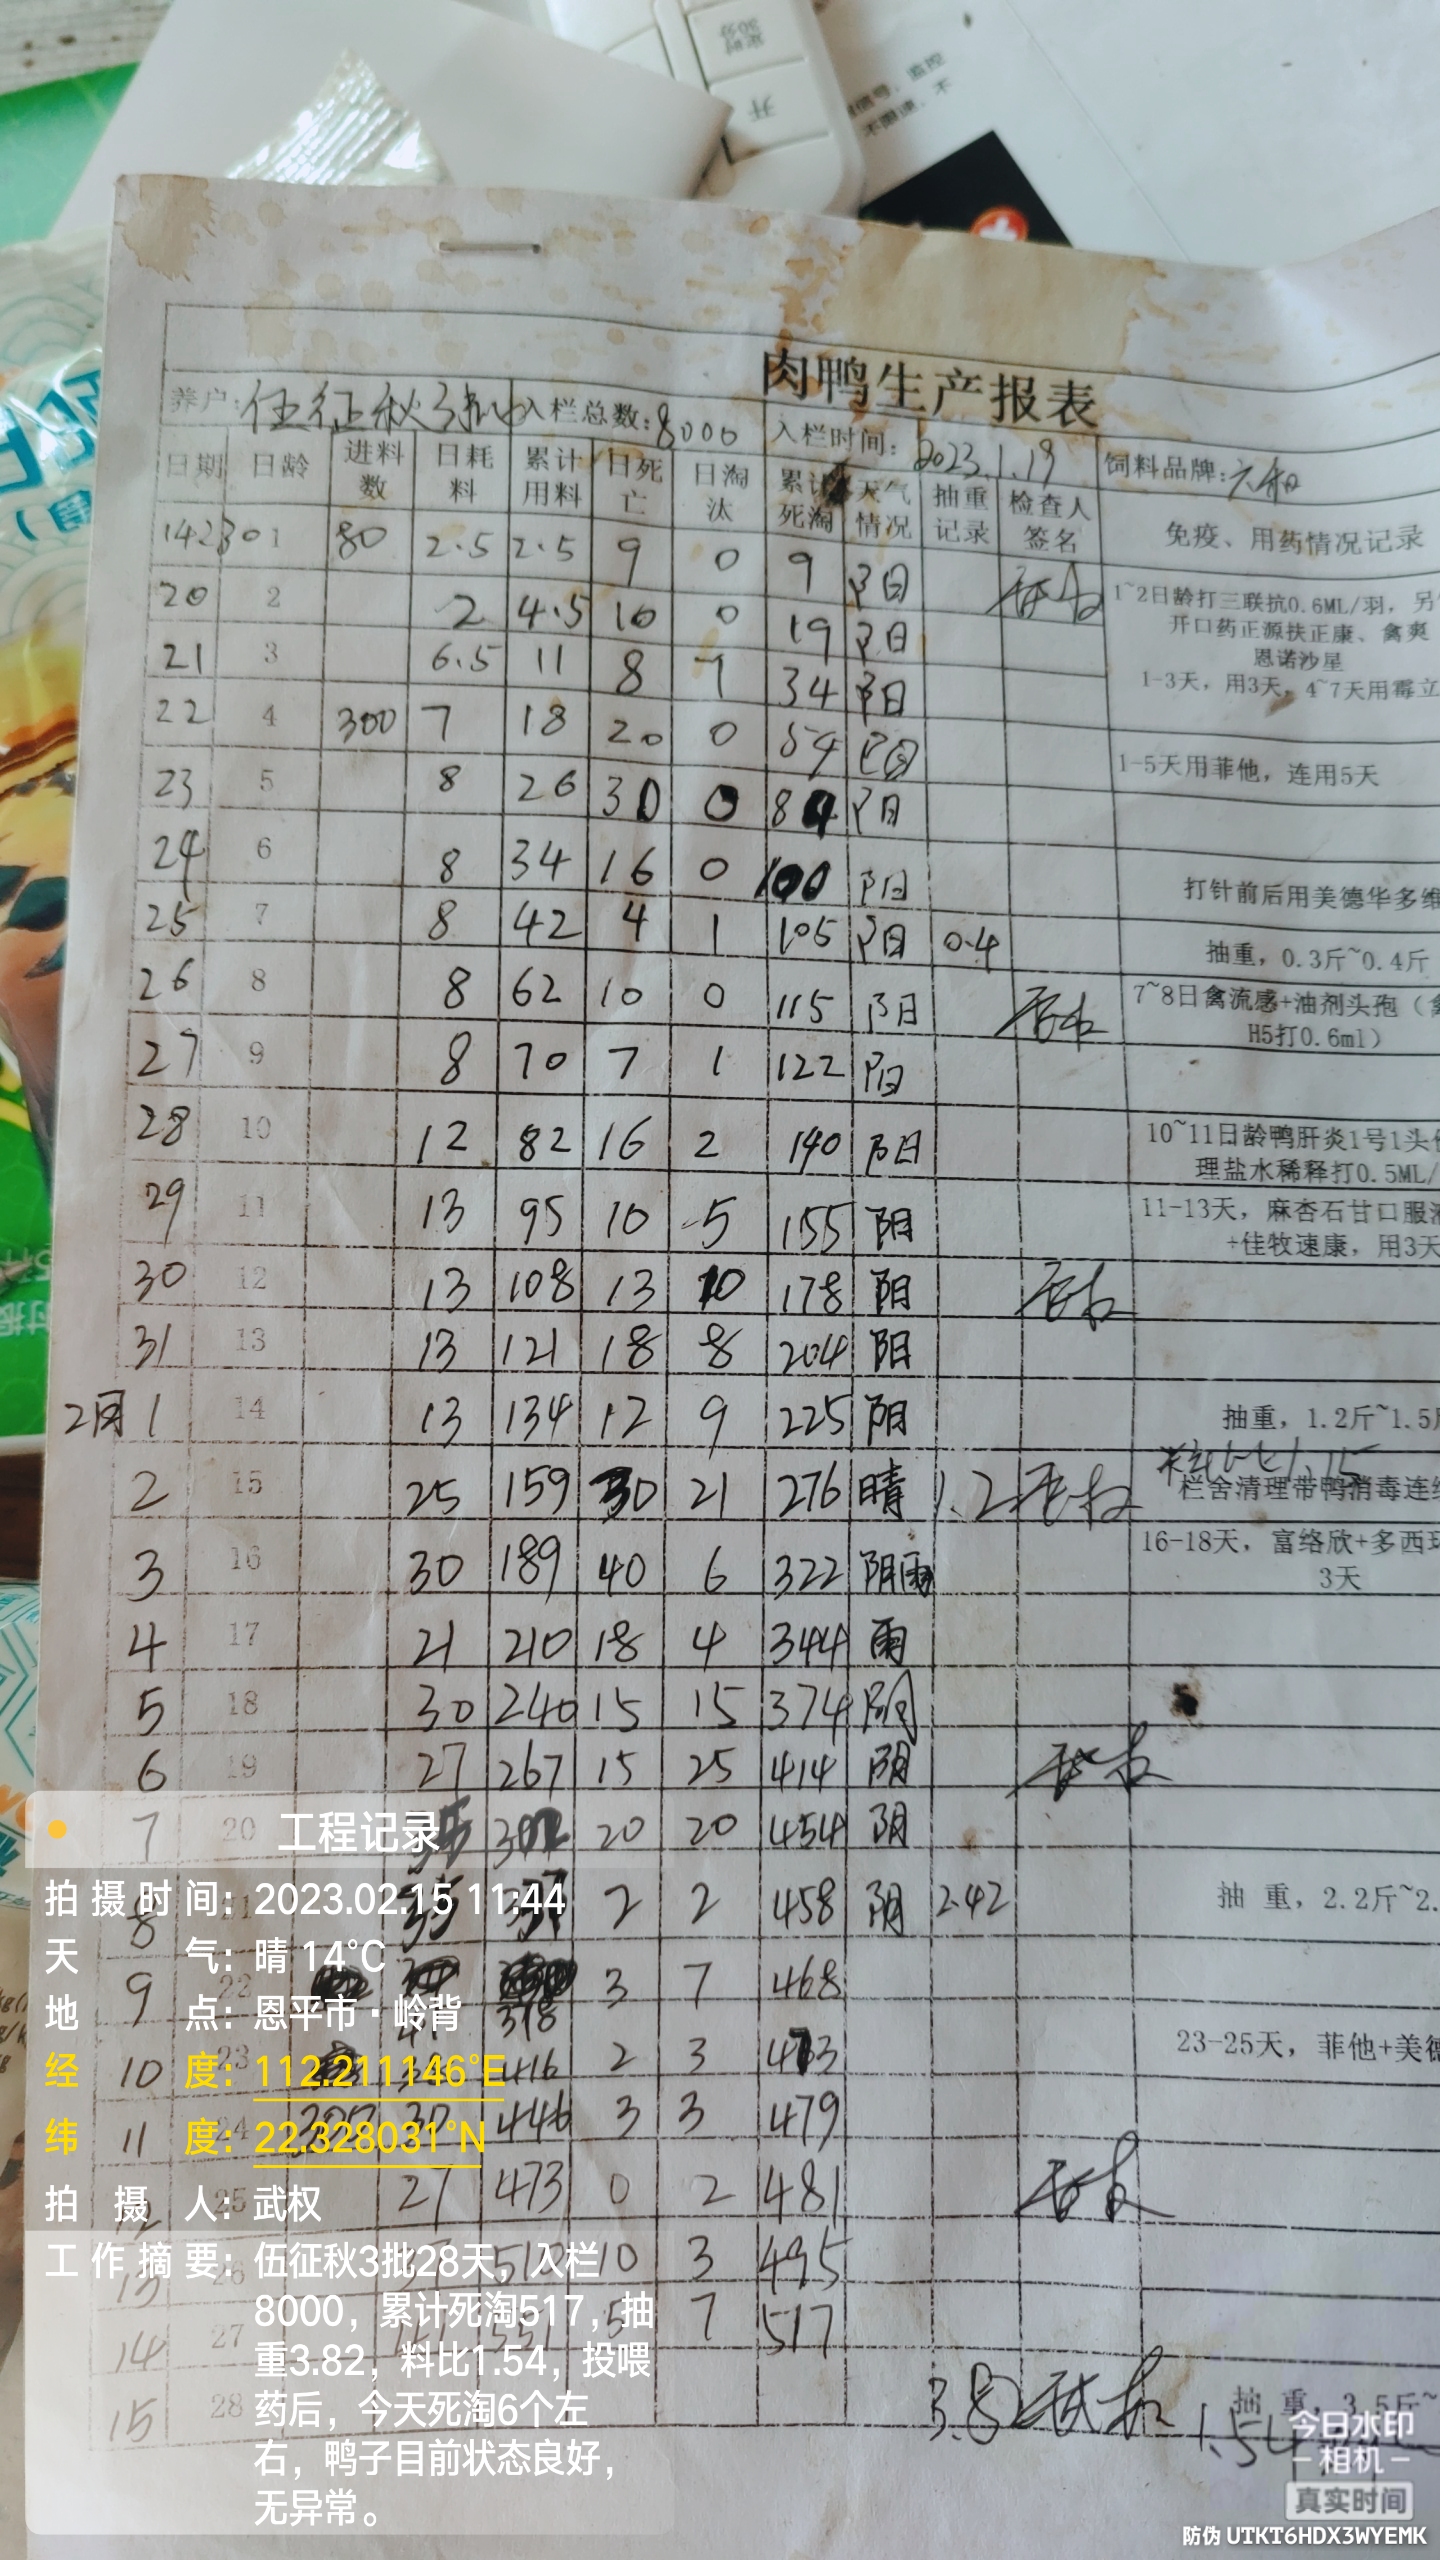 定时
30分
开
肉鸭生产报表
养户: 伍征秋3批 入栏总数: 8000 入栏时间: 2023.1.19 饲料品牌: 六和
日期 日龄 进料数 日耗料 累计用料 日死亡 日淘汰 累计死淘 天气情况 抽重记录 检查人签名 免疫、用药情况记录
1 80 2.5 2.5 9 0 9 阴
20 2 2 4.5 10 0 19 阴
1~2日龄打三联抗0.6ML/羽，另
开口药正源扶正康、禽爽
恩诺沙星
21 3 6.5 11 8 7 34 阴
1-3天，用3天，4~7天用霉立
22 4 300 7 18 20 0 54 阴
1-5天用菲他，连用5天
23 5 8 26 30 0 84 阴
24 6 8 34 16 0 100 阴 打针前后用美德华多维
25 7 8 42 4 1 105 阴 0.4 抽重，0.3斤~0.4斤
26 8 8 62 10 0 115 阴 7~8日禽流感+油剂头孢（
H5打0.6ml）
27 9 8 70 7 1 122 阴
28 10 12 82 16 2 140 阴 10~11日龄鸭肝炎1号1头
理盐水稀释打0.5ML/
29 11 13 95 10 5 155 阴 11-13天，麻杏石甘口服液
+佳牧速康，用3天
30 12 13 108 13 10 178 阴
31 13 13 121 18 8 204 阴
2月 1 14 13 134 12 9 225 阴 抽重，1.2斤~1.5斤
2 15 25 159 30 21 276 晴 1.2 1.15
栏舍清理带鸭消毒连续
3 16 30 189 40 6 322 阴雨 16-18天，富络欣+多西环
3天
4 17 21 210 18 4 344 雨
5 18 30 240 15 15 374 阴
6 19 27 267 15 25 414 阴
7 20 35 302 20 20 454 阴
8 21 35 337 2 2 458 阴 2.42 抽 重，2.2斤~2.
9 22 3 7 468
378
10 23 416 2 3 473 23-25天，菲他+美德
11 24 30 446 3 3 479
12 25 27 473 0 2 481
13 26 510 10 3 495
14 27 551 5 7 517
15 28 3.8 抽 重，3.5斤~
1.54
工程记录
拍摄时间: 2023.02.15 11:44
天气: 晴 14℃
地点: 恩平市·岭背
经度: 112.211146°E
纬度: 22.328031°N
拍摄人: 武权
工作摘要: 伍征秋3批28天，入栏
8000，累计死淘517，抽
重3.82，料比1.54，投喂
药后，今天死淘6个左
右，鸭子目前状态良好，
无异常。
今日水印
相机
真实时间
防伪 UTKT6HDX3WYEMK